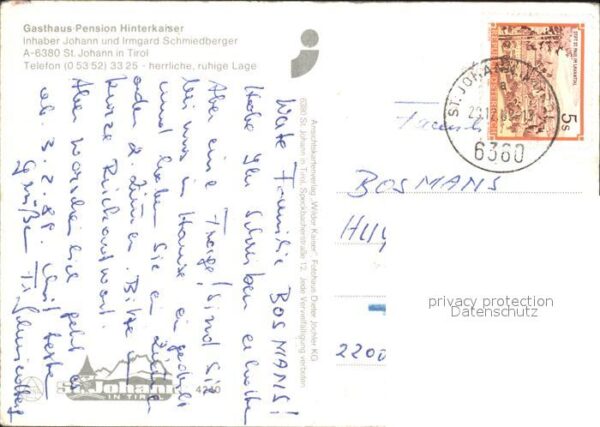 Gasthaus-Pension Hinterkaiser
Inhaber Johann und Irmgard Schmiedberger
A-6380 St. Johann in Tirol
Telefon (0 53 52) 33 25 - herrliche, ruhige Lage
Werte Familie BOSMANS!
habe Ihr Schreiben erhalten
Aber eine Frage! Sind Sie
bei uns im Hause
und haben Sie ein Zimmer
oder 2 Zimmer. Bitte um
kurze Rückantwort.
Aber warscheinlich geht es
ab. 3.2.88. Mit besten
Grüßen
Ansichtskartenverlag „Wilder Kaiser" Fotohaus Dieter Jöchler KG
6380 St. Johann in Tirol, Speckbacherstraße 12. Jede Vervielfältigung verboten
5 S
ST. JOHANN
6380
Famili
BOSMANS
2200
privacy protection
Datenschutz
St. Johann
IN TIROL